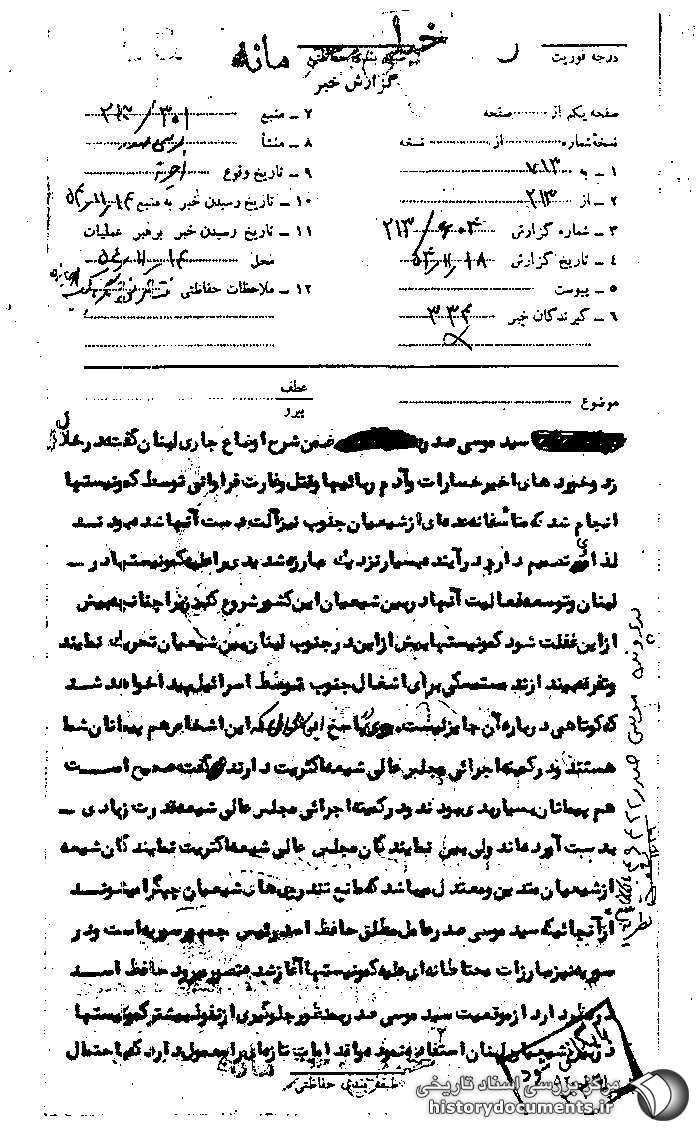 خیلی محرمانه
درجه فوریت
گزارش خبر
صفحه یکم از صفحه
نسخه شماره از نسخه
۱ - به ۷۱۳
۲ - از ۲۱۳
۳ - شماره گزارش
۴ - تاریخ گزارش
۵ - پیوست
۶ - گیرندگان خبر ۳۳۴
۷ - منبع
۸ - منشأ
۹ - تاریخ وقوع اخیراً
۱۰ - تاریخ رسیدن خبر به منبع
۱۱ - تاریخ رسیدن خبر برهبر عملیات
محل
۱۲ - ملاحظات حفاظتی
موضوع
عطف
پیرو
سید موسی صدر ضمن شرح اوضاع جاری لبنان گفته در خلال
زد و خورد های اخیر خسارات و آدم ربائیها و قتل و غارت فراوانی توسط کمونیستها
انجام شد که متأسفانه عده ای از شیعیان جنوب نیز آلت دست آنها شده بودند
لذا تصمیم دارم در آینده بسیار نزدیک مبارزه شدیدی را علیه کمونیستها در -
لبنان و توسعه فعالیت آنها در بین شیعیان این کشور شروع کنم زیرا چنانچه بیش
از این غفلت شود کمونیستها بیش از این در جنوب لبنان بین شیعیان تحریک نمایند
و تفرقه بیندازند مستمسکی برای اشغال جنوب توسط اسرائیل پیدا خواهد شد
که کوتاهی در باره آن جایز نیست. وی در پاسخ این سؤال که این اشخاص هم پیمانان شما
هستند و در کمیته اجرائی مجلس عالی شیعه اکثریت دارند گفته صحیح است
هم پیمانان بسیار بدی بودند و در کمیته اجرائی مجلس عالی شیعه قدرت زیادی -
بدست آورده اند ولی بین نمایندگان مجلس عالی شیعه اکثریت نمایندگان شیعه
از شیعیان متدین و معتدل میباشد که مانع تندروی های شیعیان چپگرا میشوند
از آنجائیکه سید موسی صدر عامل مطلق حافظ اسد رئیس جمهور سوریه است و در
سوریه نیز مبارزات محتاطانه ای علیه کمونیستها آغاز شده متصور میرود حافظ اسد
در نظر دارد از موقعیت سید موسی صدر بمنظور جلوگیری از نفوذ بیشتر کمونیستها
در بین شیعیان لبنان استفاده نموده و اقدامات تازه ای را معمول دارد که احتمال
طبقه بندی حفاظتی
بایگانی شود
مرکز بررسی اسناد تاریخی
historydocuments.ir